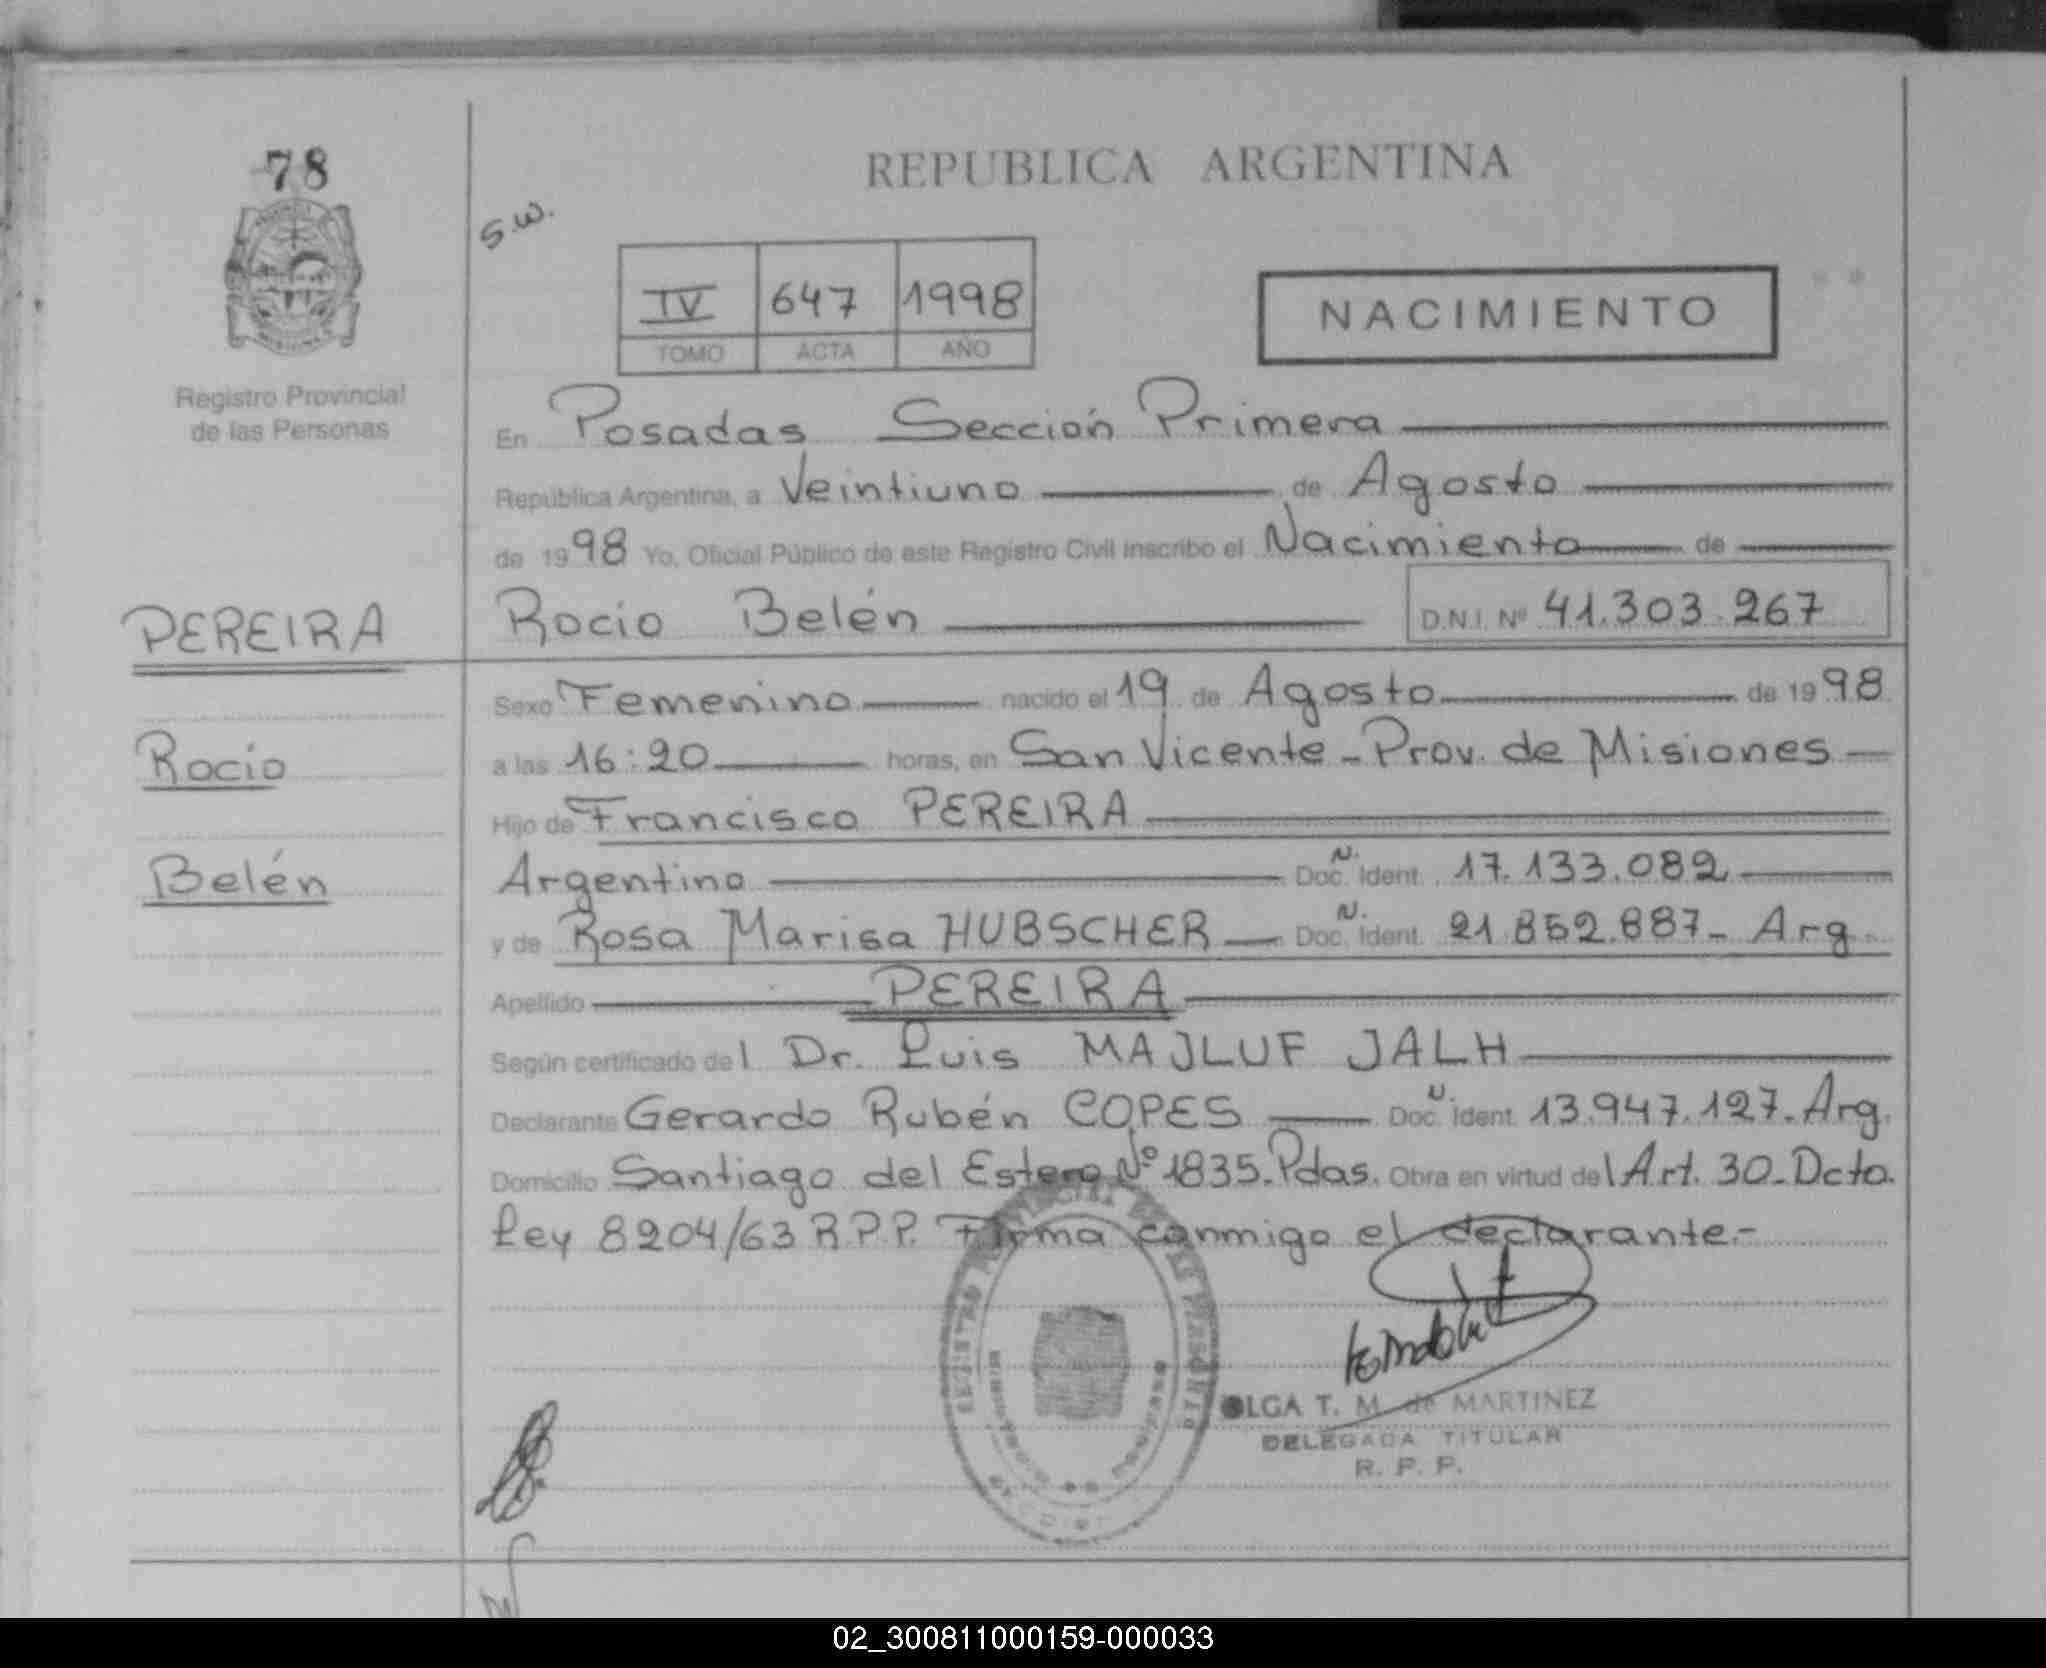 78
REPUBLICA ARGENTINA
s.w.
IV 647 1998
TOMO ACTA AÑO
NACIMIENTO
Registro Provincial
de las Personas
En Posadas Sección Primera
República Argentina, a Veintiuno de Agosto
de 1998 Yo, Oficial Público de este Registro Civil inscribo el Nacimiento de
PEREIRA
Rocio Belén D.N.I. Nº 41.303.267
Sexo Femenino nacido el 19 de Agosto de 1998
Rocio
a las 16:20 horas, en San Vicente - Prov. de Misiones
Hijo de Francisco PEREIRA
Belén
Argentino Doc. N. Ident. 17.133.082
y de Rosa Marisa HUBSCHER Doc. N. Ident. 21.852.887 - Arg.
Apellido PEREIRA
Según certificado del Dr. Luis MAJLUF JALH
Declarante Gerardo Rubén COPES Doc. N. Ident. 13.947.127. Arg.
Domicilio Santiago del Estero Nº 1835. Pdas. Obra en virtud del Art. 30 - Dcto.
Ley 8204/63 R.P.P. Firma conmigo el declarante.-
OLGA T. M. de MARTINEZ
DELEGADA TITULAR
R. P. P.
02_300811000159-000033